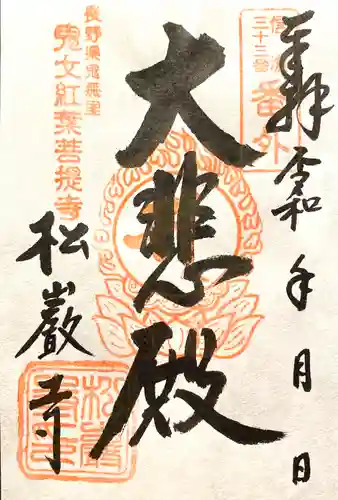 奉拝 令和 年 月 日
信濃
三十三番
番外
大悲殿
長野県鬼無里
鬼女紅葉菩提寺
松巖寺